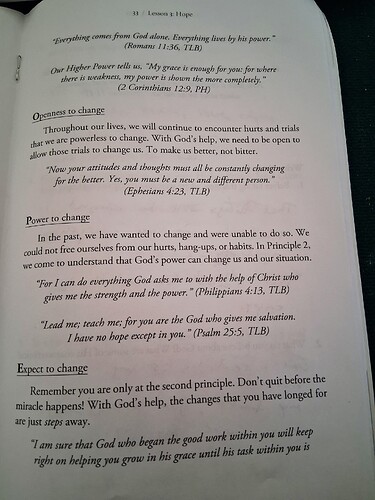 33 / Lesson 3: Hope
"Everything comes from God alone. Everything lives by his power."
(Romans 11:36, TLB)
Our Higher Power tells us, "My grace is enough for you: for where
there is weakness, my power is shown the more completely."
(2 Corinthians 12:9, PH)
Openness to change
Throughout our lives, we will continue to encounter hurts and trials
that we are powerless to change. With God's help, we need to be open to
allow those trials to change us. To make us better, not bitter.
"Now your attitudes and thoughts must all be constantly changing
for the better. Yes, you must be a new and different person."
(Ephesians 4:23, TLB)
Power to change
In the past, we have wanted to change and were unable to do so. We
could not free ourselves from our hurts, hang-ups, or habits. In Principle 2,
we come to understand that God's power can change us and our situation.
"For I can do everything God asks me to with the help of Christ who
gives me the strength and the power." (Philippians 4:13, TLB)
"Lead me; teach me; for you are the God who gives me salvation.
I have no hope except in you." (Psalm 25:5, TLB)
Expect to change
Remember you are only at the second principle. Don't quit before the
miracle happens! With God's help, the changes that you have longed for
are just steps away.
"I am sure that God who began the good work within you will keep
right on helping you grow in his grace until his task within you is